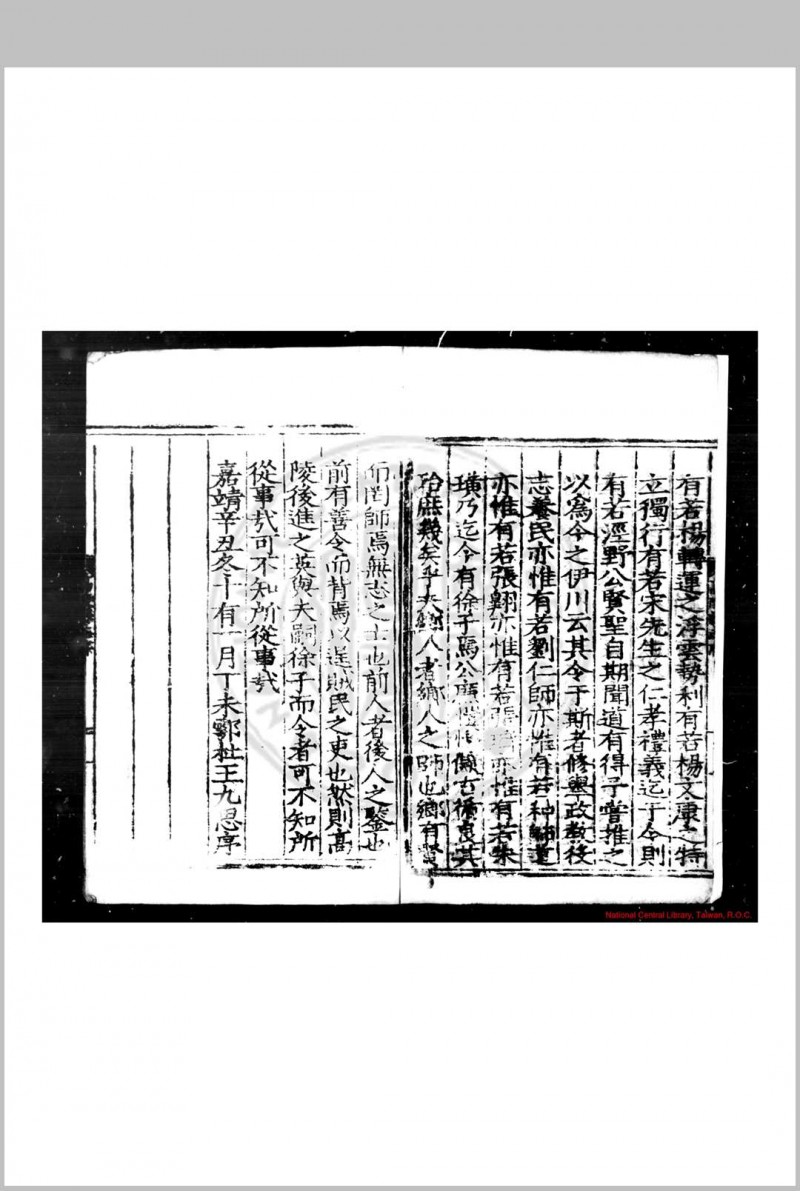 有若楊轉運之浮雲勢利有若楊文康之特
立獨行有若宋先生之仁孝禮義迄于今則
有若涇野公賢聖自期聞道有得予嘗推之
以為今之伊川云其令于斯者修舉政教後
志養民亦惟有若劉仁師亦惟有若种師道
亦惟有若張翺亦惟有若張 亦惟有若朱
璜乃迄今有徐子焉公廉 懷古循良其
殆庶幾矣乎夫鄉人者鄉人之師也鄉有賢
而罔師焉無志之士也前人者後人之鑒也
前有善令而背焉以逞賊民之吏也然則高
陵後進之英與夫嗣徐子而令者可不知所
從事哉可不知所從事哉
嘉靖辛丑冬十有一月丁未鄠杜王九思序
National Central Library, Taiwan, R.O.C.